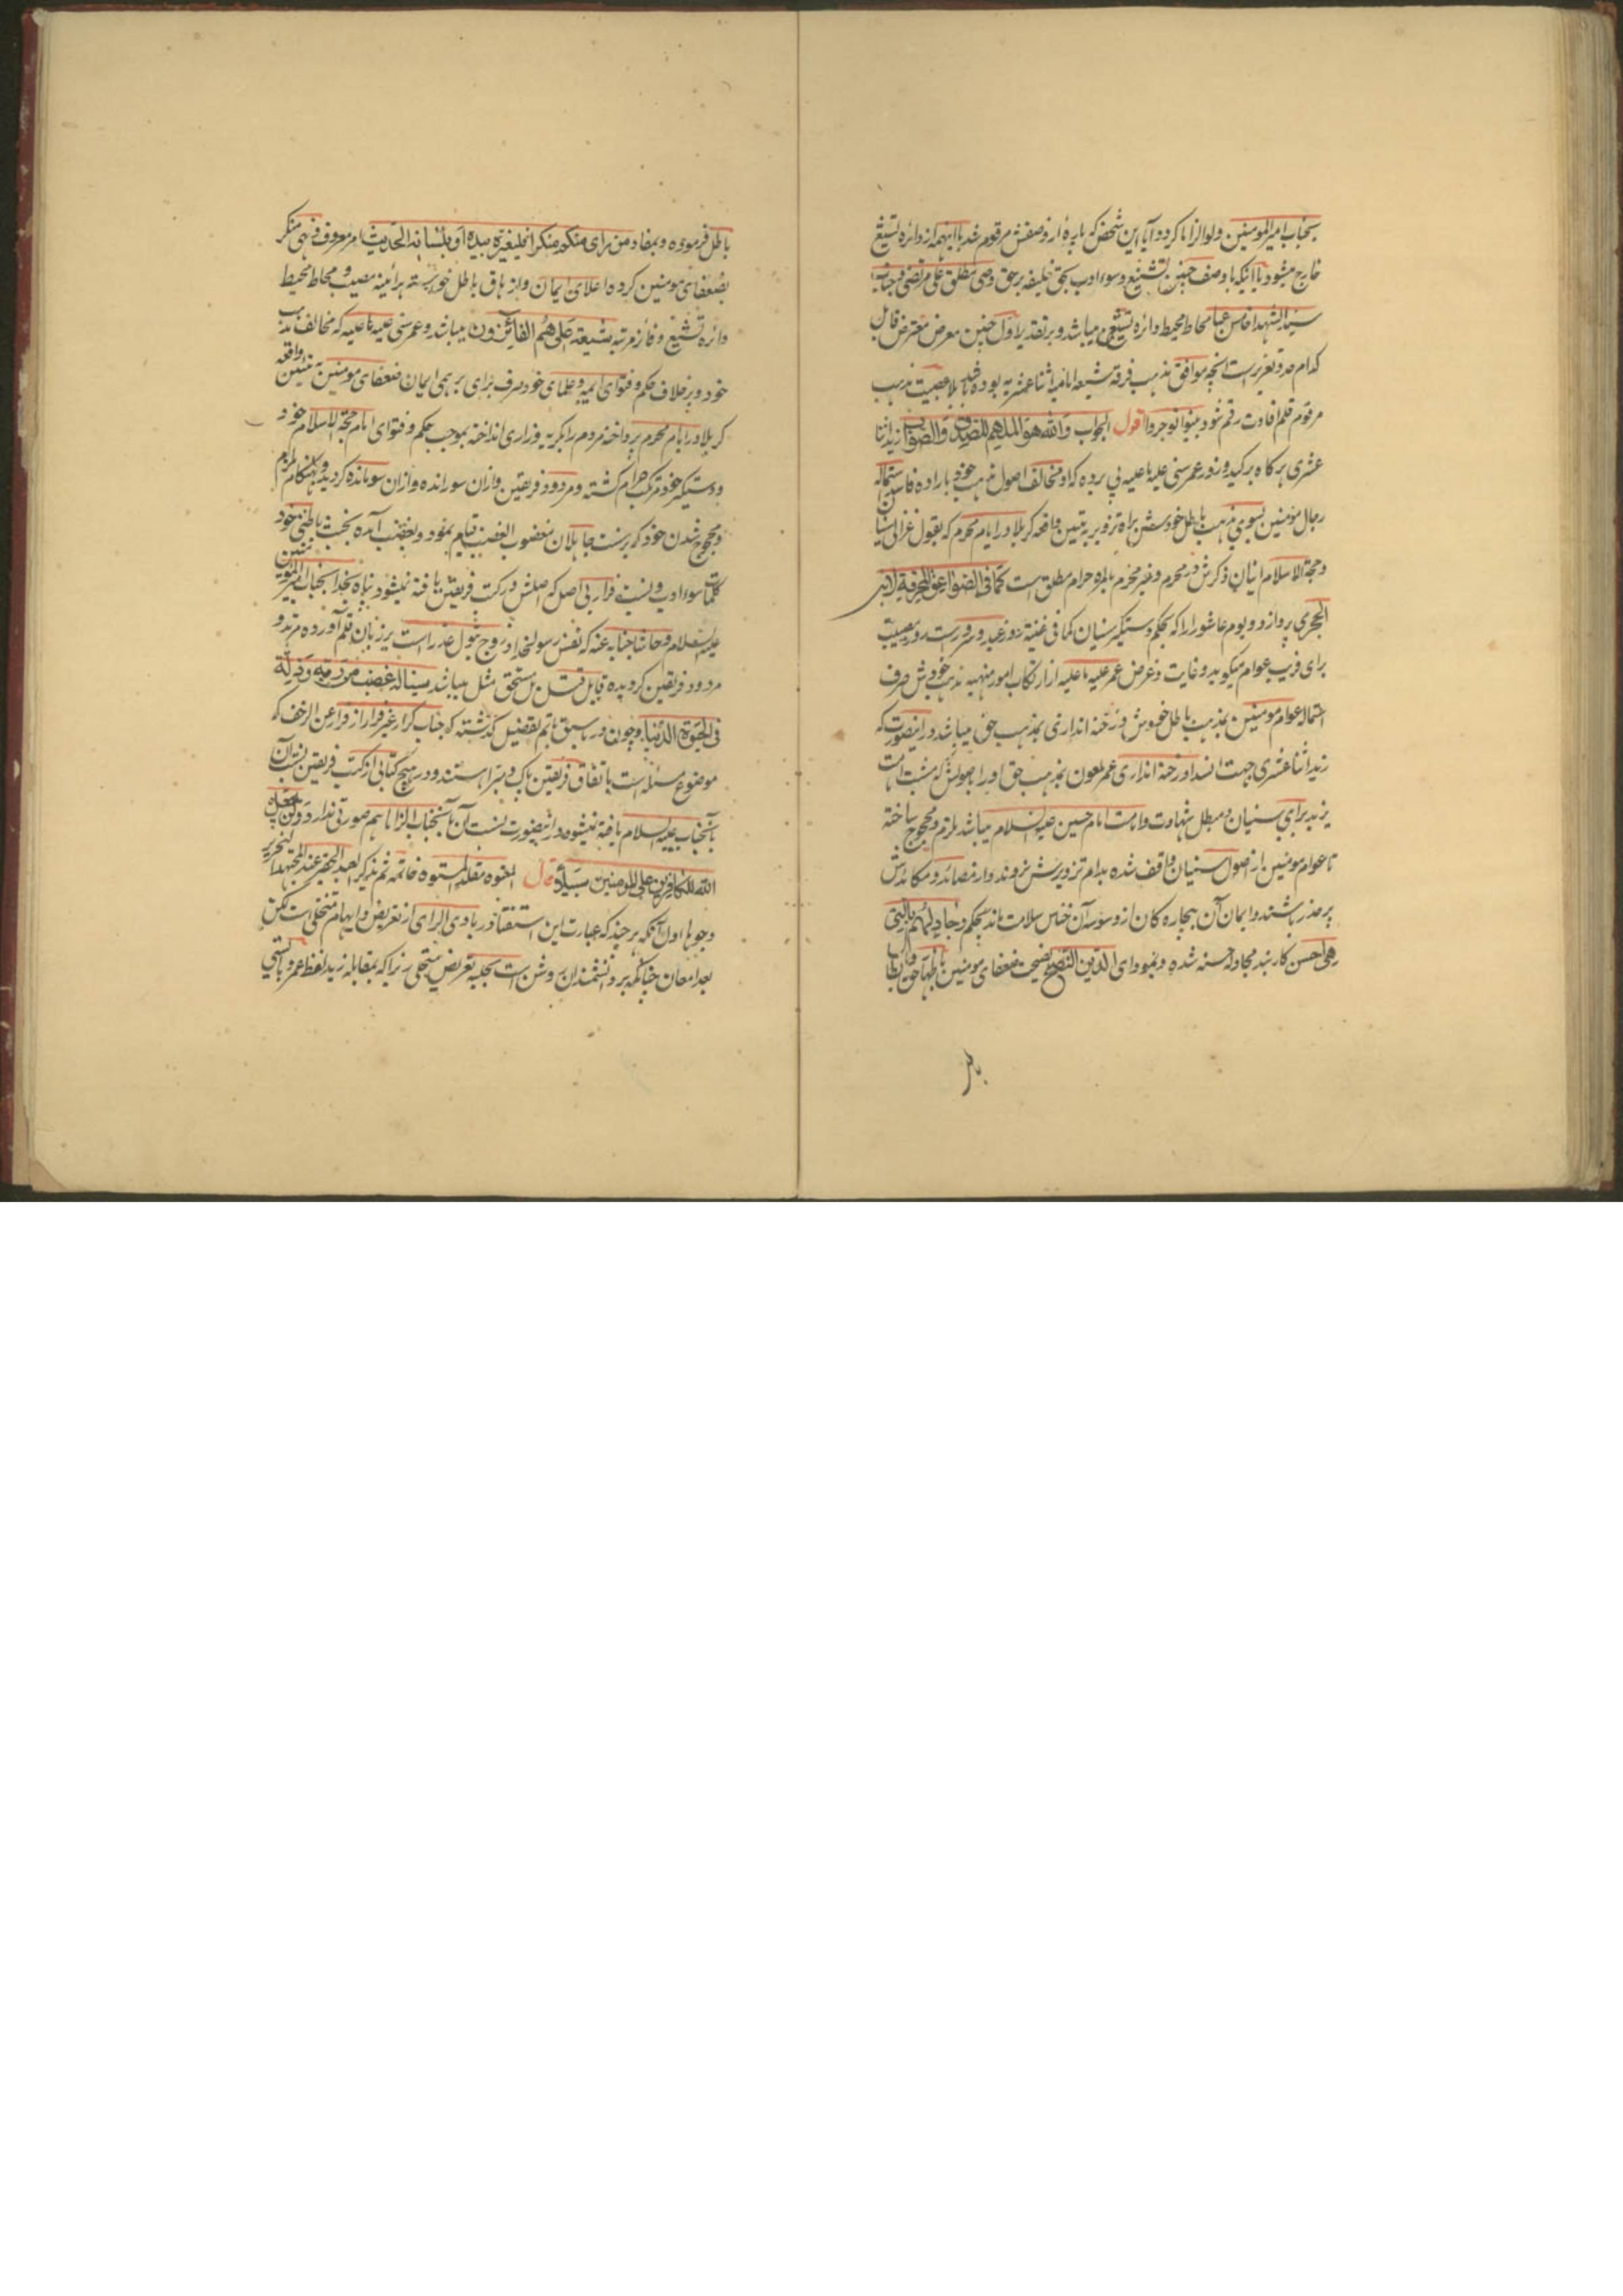 بجناب امیرالمومنین ولو الزاما کرد و آیا این شخص که پاره از وصفش مرقوم شد با اینهمه از دائره تشیع
خارج میشود یا اینکه با وصف چنین تشنیع و سوء ادب بحق خلیفه برحق وصی مطلق علی مرتضی و جناب
سیدالشهدا خامس عبا محاط محیط دائره تشیع میباشد و بر تقدیر اول چنین معرض معترض قابل
کدام حد و تعزیر است آنچه موافق مذهب فرقه شیعه امامیه اثنا عشریه بوده باشد بلا عصبیت مذهب
مرقوم قلم افادت رقم شود بینوا توجروا اقول الجواب والله هو الملهم للصدق والصواب زید اثنا
عشری هرگاه بر کید و زور عمر سنی علیه ما علیه پی برده که او مخالف اصول مذهب خود باراده فاسد استماله
رجال مومنین بسوی مذهب باطل خودش براه تزویر به تبیین واقعه کربلا در ایام محرم که بقول غزالی
وحجة الاسلام اینان ذکرش در محرم و غیر محرم بالمره حرام مطلق است کما فی الصواعق المحرقة لابن
الحجر می پردازد و یوم عاشورا را که بحکم دستگیر سنیان کما فی غنیة روز عید و سرور است روز مصیبت
برای فریب عوام میگوید و غایت و غرض عمر علیه ما علیه از ارتکاب امور منهیه مذهب خودش صرف
استماله عوام مومنین بمذهب باطل خودش و رخنه اندازی بمذهب حق میباشد در اینصورت که
زید اثنا عشری جهت انسداد رخنه اندازی عمر ملعون بمذهب حق او را باصولش که مثبت امامت
یزید برای سنیان و مبطل شهادت و امامت امام حسین علیه السلام میباشد ملزم و محجوج ساخته
تا عوام مومنین از اصول سنیان واقف شده بدام تزویرش نروند و از مصائد و مکائدش
بر حذر باشند و ایمان آن بیچاره کان از وسوسه آن خناس سلامت ماند بحکم وجادلهم بالتی
هی احسن کاربند مجادله حسنه شده و بمودای الدین النصیح نصیحت ضعفای مومنین باظهار حق و ابطال
باطل فرموده و بمفاد من رای منکم منکرا فلیغیره بیده او بلسانه الحدیث امر معروف و نهی منکر
بضعفای مومنین کرده اعلای ایمان و ازهاق باطل خواسته هرآئینه مصیب و محاط محیط
دائره تشیع و فائز مرتبه شیعة علی هم الفائزون میباشد و عمر سنی علیه ما علیه که مخالف مذهب
خود و برخلاف حکم و فتوای ایمه و علمای خود صرف برای برهمی ایمان ضعفای مومنین به تبیین واقعه
کربلا در ایام محرم پرداخته مردم را بگریه و زاری انداخته بموجب حکم و فتوای امام حجة الاسلام خود
و دستگیر خود مرتکب حرام گشته و مردود فریقین و ازان سو رانده و ازان سو مانده گردیده و بهنگام ملزم
ومحجوج شدن خود که برسنت جاهلان مغضوب الغضب قیام نمود و بغضب آمده بخبث باطنی خود
کلمات سوء ادب و نسبت فرار بی اصل که اصلش در کتب فریقین یافته نمیشود پناه بخدا بجناب امیرالمومنین
علیه السلام وحاشا جنابه عنه که نفس رسولخدا و زوج بتول عذرا است بر زبان قلم آورده مرتد و
مردود فریقین گردیده قابل قتل بل مستحق مثل میباشد سینا له غضب من ربه و ذلة
فی الحیوة الدنیا و چون در ما سبق باتم تفصیل گذشته که جناب کرار غیر فرار از فرار عن الزحف که
موضوع مسئله است باتفاق فریقین پاک و مبرا هستند و در هیچ کتابی از کتب فریقین نسبت آن
بآنجناب علیه السلام یافته نمیشود در اینصورت نسبت آن بآنجناب الزاما هم صورتی ندارد ولن یجعل
الله للکافرین علی المومنین سبیلا قال المفتوه مقلد المستوه خاتمة ثم نذکر بعد
وجوبا اول آنکه هر چند که عبارت این استفتا در بادی الرای از تعریض و ایهام متخلی است لکن
بعد امعان چنانکه بر دانشمندان روشن است بحلیه تعریض متحلی زیرا که بمقابله زید لفظ عمر